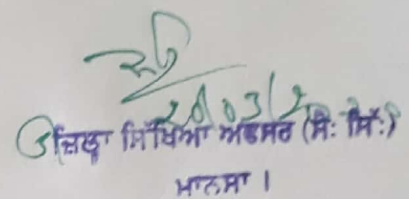 20/03/2
ਜ਼ਿਲ੍ਹਾ ਸਿੱਖਿਆ ਅਫਸਰ (ਸੈ: ਸਿੱ:)
ਮਾਨਸਾ ।